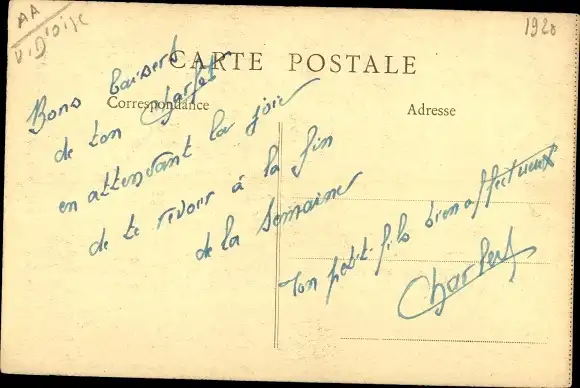 AA
V. D'OISE
1920
CARTE POSTALE
Correspondance
Adresse
Bons baisers
de ton Charlot
en attendant la joie
de te revoir à la fin
de la semaine
Ton petit-fils bien affectueux
Charlot